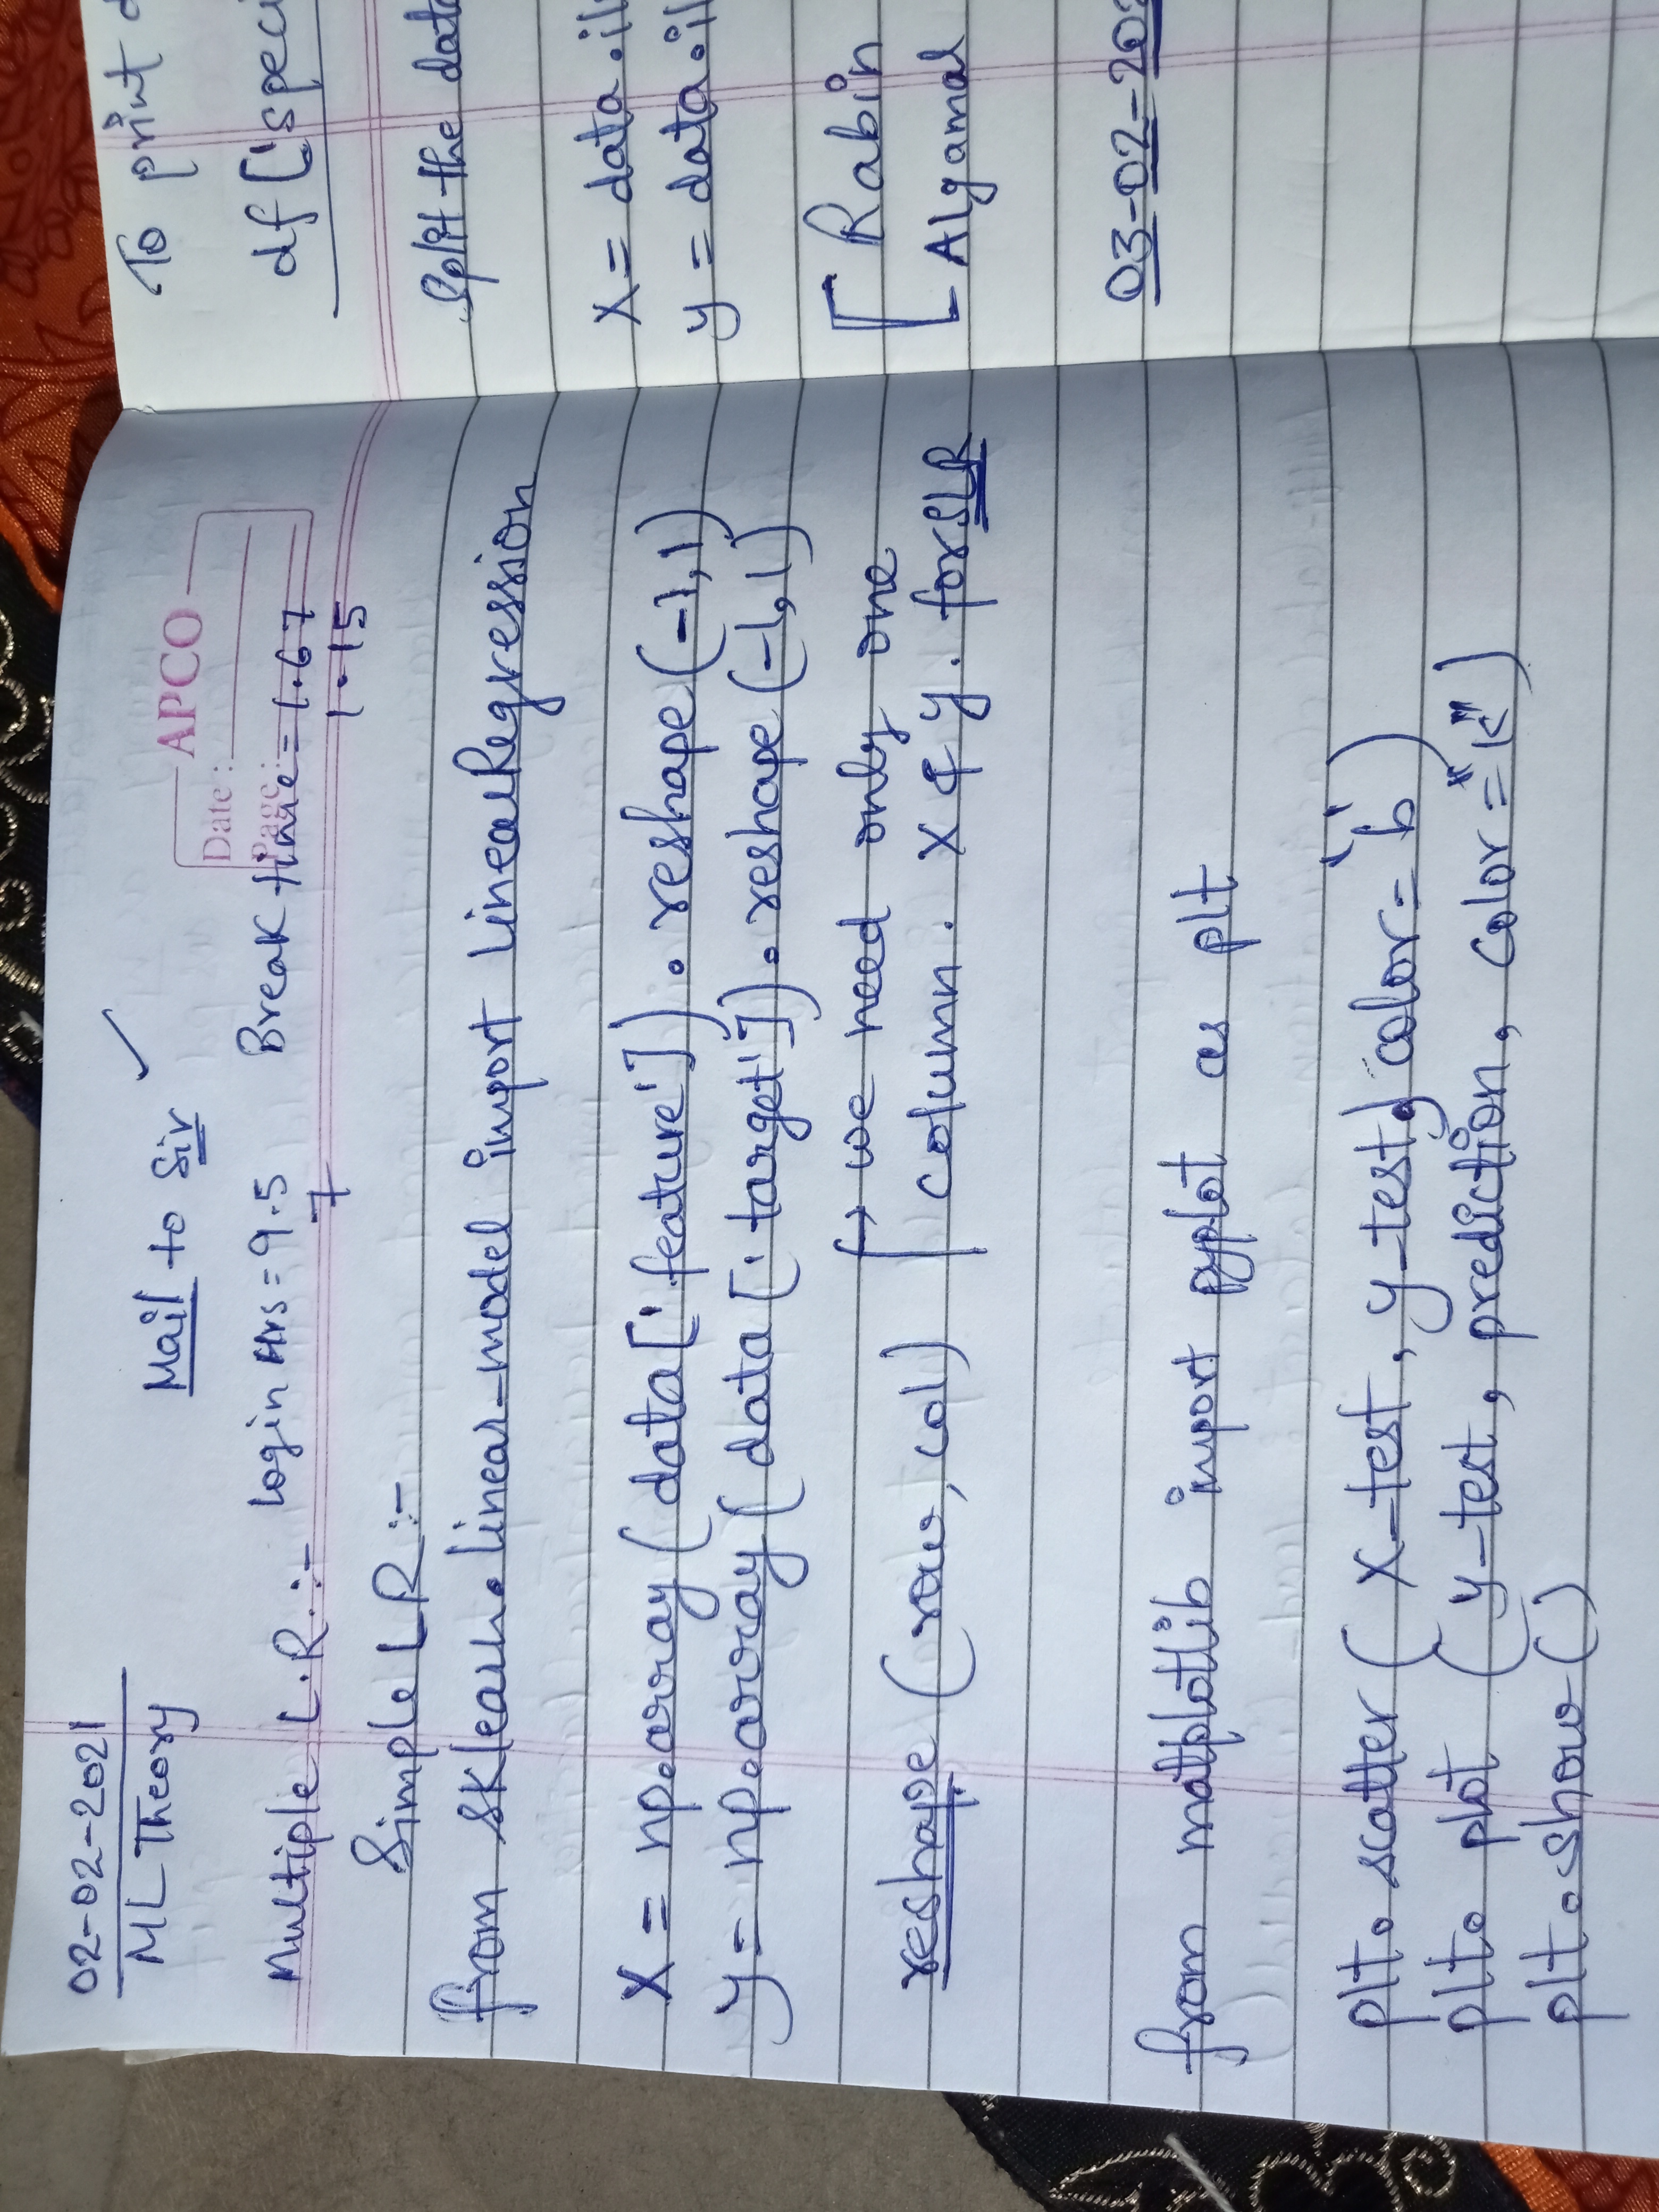 02-02-2021
ML Theory
Mail to Sir ✓
APCO
Date :
Page :
Multiple L.R. :- Login Hrs = 9.5 Break time = 1.67
7 1.15
Simple LR :-
from sklearn.linear_model import LinearRegression
X = np.array(data['feature']).reshape(-1,1)
y = np.array(data['target']).reshape(-1,1)
reshape (row, col) ↳ we need only one
column. X & y. for SLR
from matplotlib import pyplot as plt
plt.scatter(X_test, y_test, color='b')
plt.plot (y_test, prediction, color="k")
plt.show()
To print
df['speci
Split the data
X = data.il
y = data.il
Rabin
Algamal
03-02-202